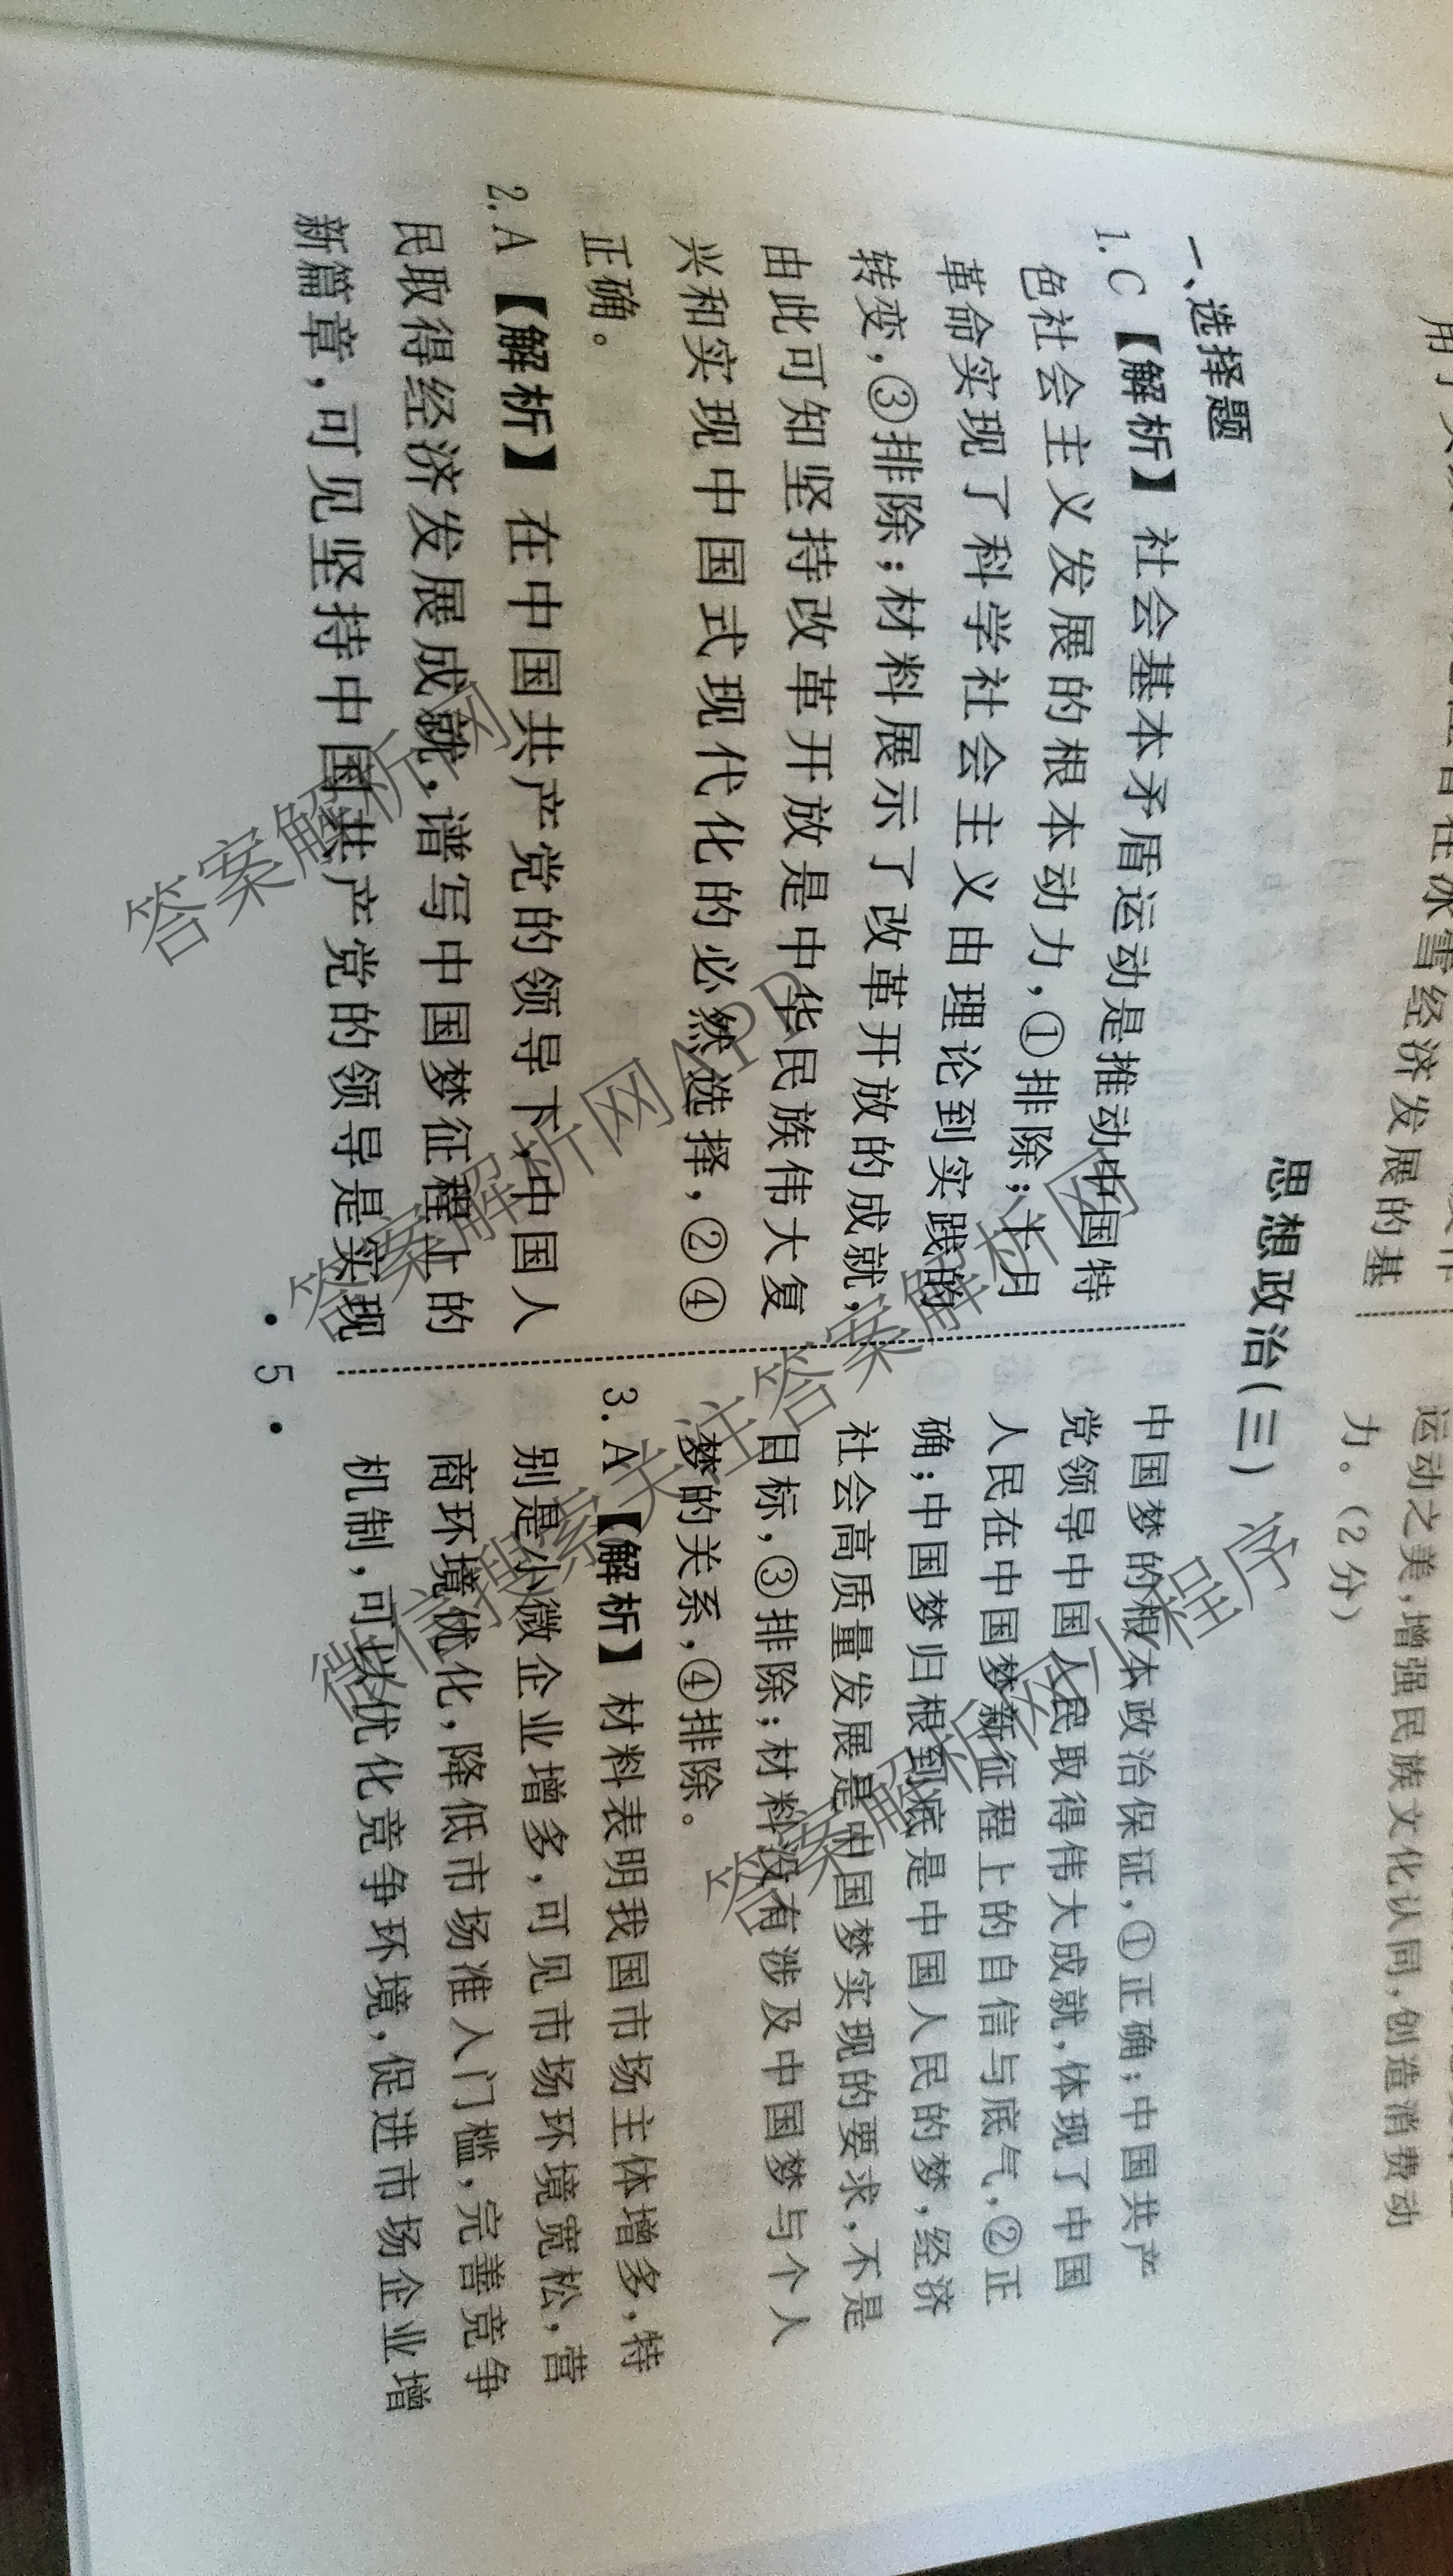 经济发展的基
运动之美,增强民族文化认同,创造消费动
力。(2分)
思想政治(三)
一、选择题
1. C 【解析】社会基本矛盾运动是推动中国特
色社会主义发展的根本动力,①排除;十月
革命实现了科学社会主义由理论到实践的
转变,③排除;材料展示了改革开放的成就,
由此可知坚持改革开放是中华民族伟大复
兴和实现中国式现代化的必然选择,②④
正确。
2. A 【解析】在中国共产党的领导下,中国人
民取得经济发展成就,谱写中国梦征程上的
新篇章,可见坚持中国共产党的领导是实现
中国梦的根本政治保证,①正确;中国共产
党领导中国人民取得伟大成就,体现了中国
人民在中国梦新征程上的自信与底气,②正
确;中国梦归根到底是中国人民的梦,经济
社会高质量发展是中国梦实现的要求,不是
目标,③排除;材料没有涉及中国梦与个人
梦的关系,④排除。
3. A 【解析】材料表明我国市场主体增多,特
别是小微企业增多,可见市场环境宽松,营
商环境优化,降低市场准入门槛,完善竞争
机制,可以优化竞争环境,促进市场企业增
· 5 ·
答案解析网
答案解析网APP
微信搜索关注答案解析网
答案解析网小程序